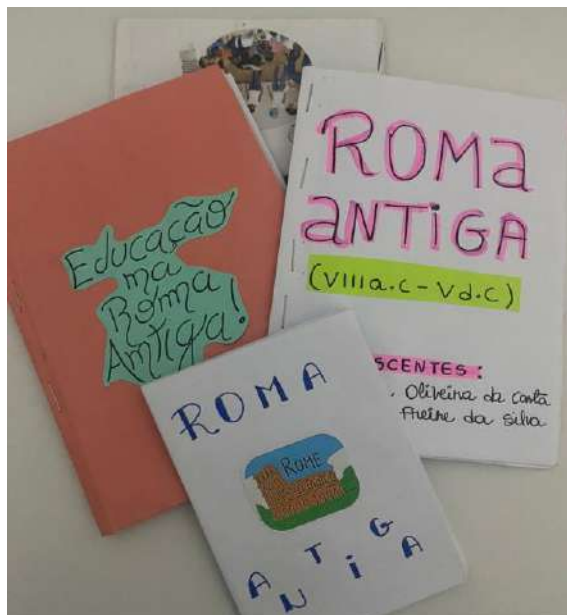 Educação
na
Roma
Antiga!
ROMa
aNTiGA
(VIIIa.c - Vd.c)
SCENTES:
. Oliveira da Costa
Freire da Silva
ROMA
ROME
ANTiGA